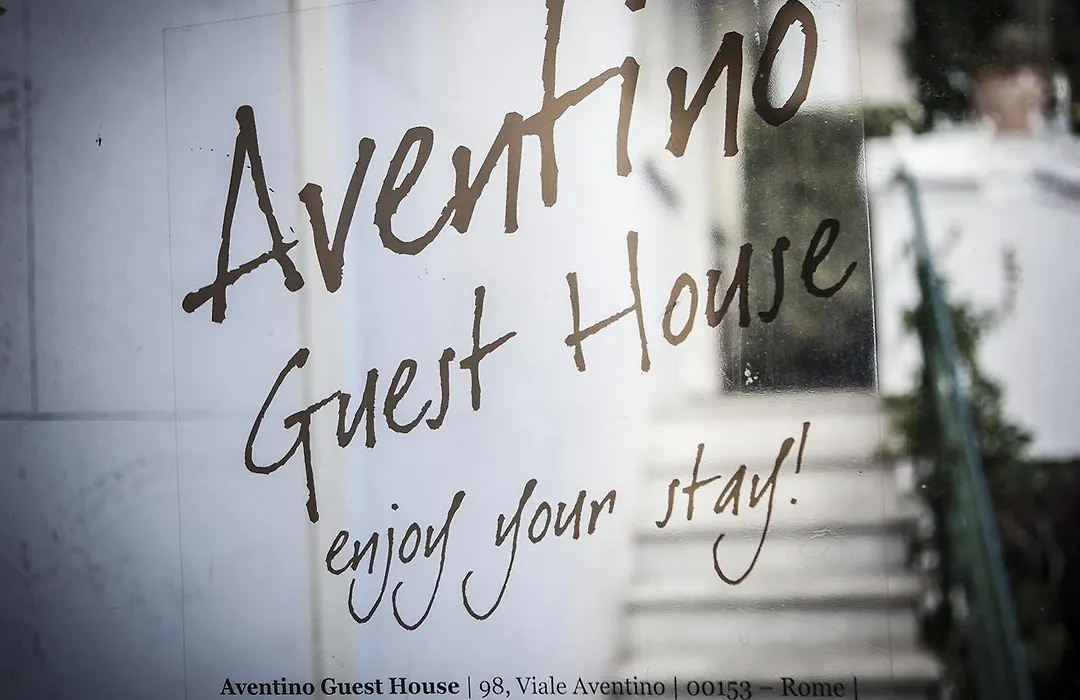 Aventino
Guest House
enjoy your stay!
Aventino Guest House | 98, Viale Aventino | 00153 – Rome |